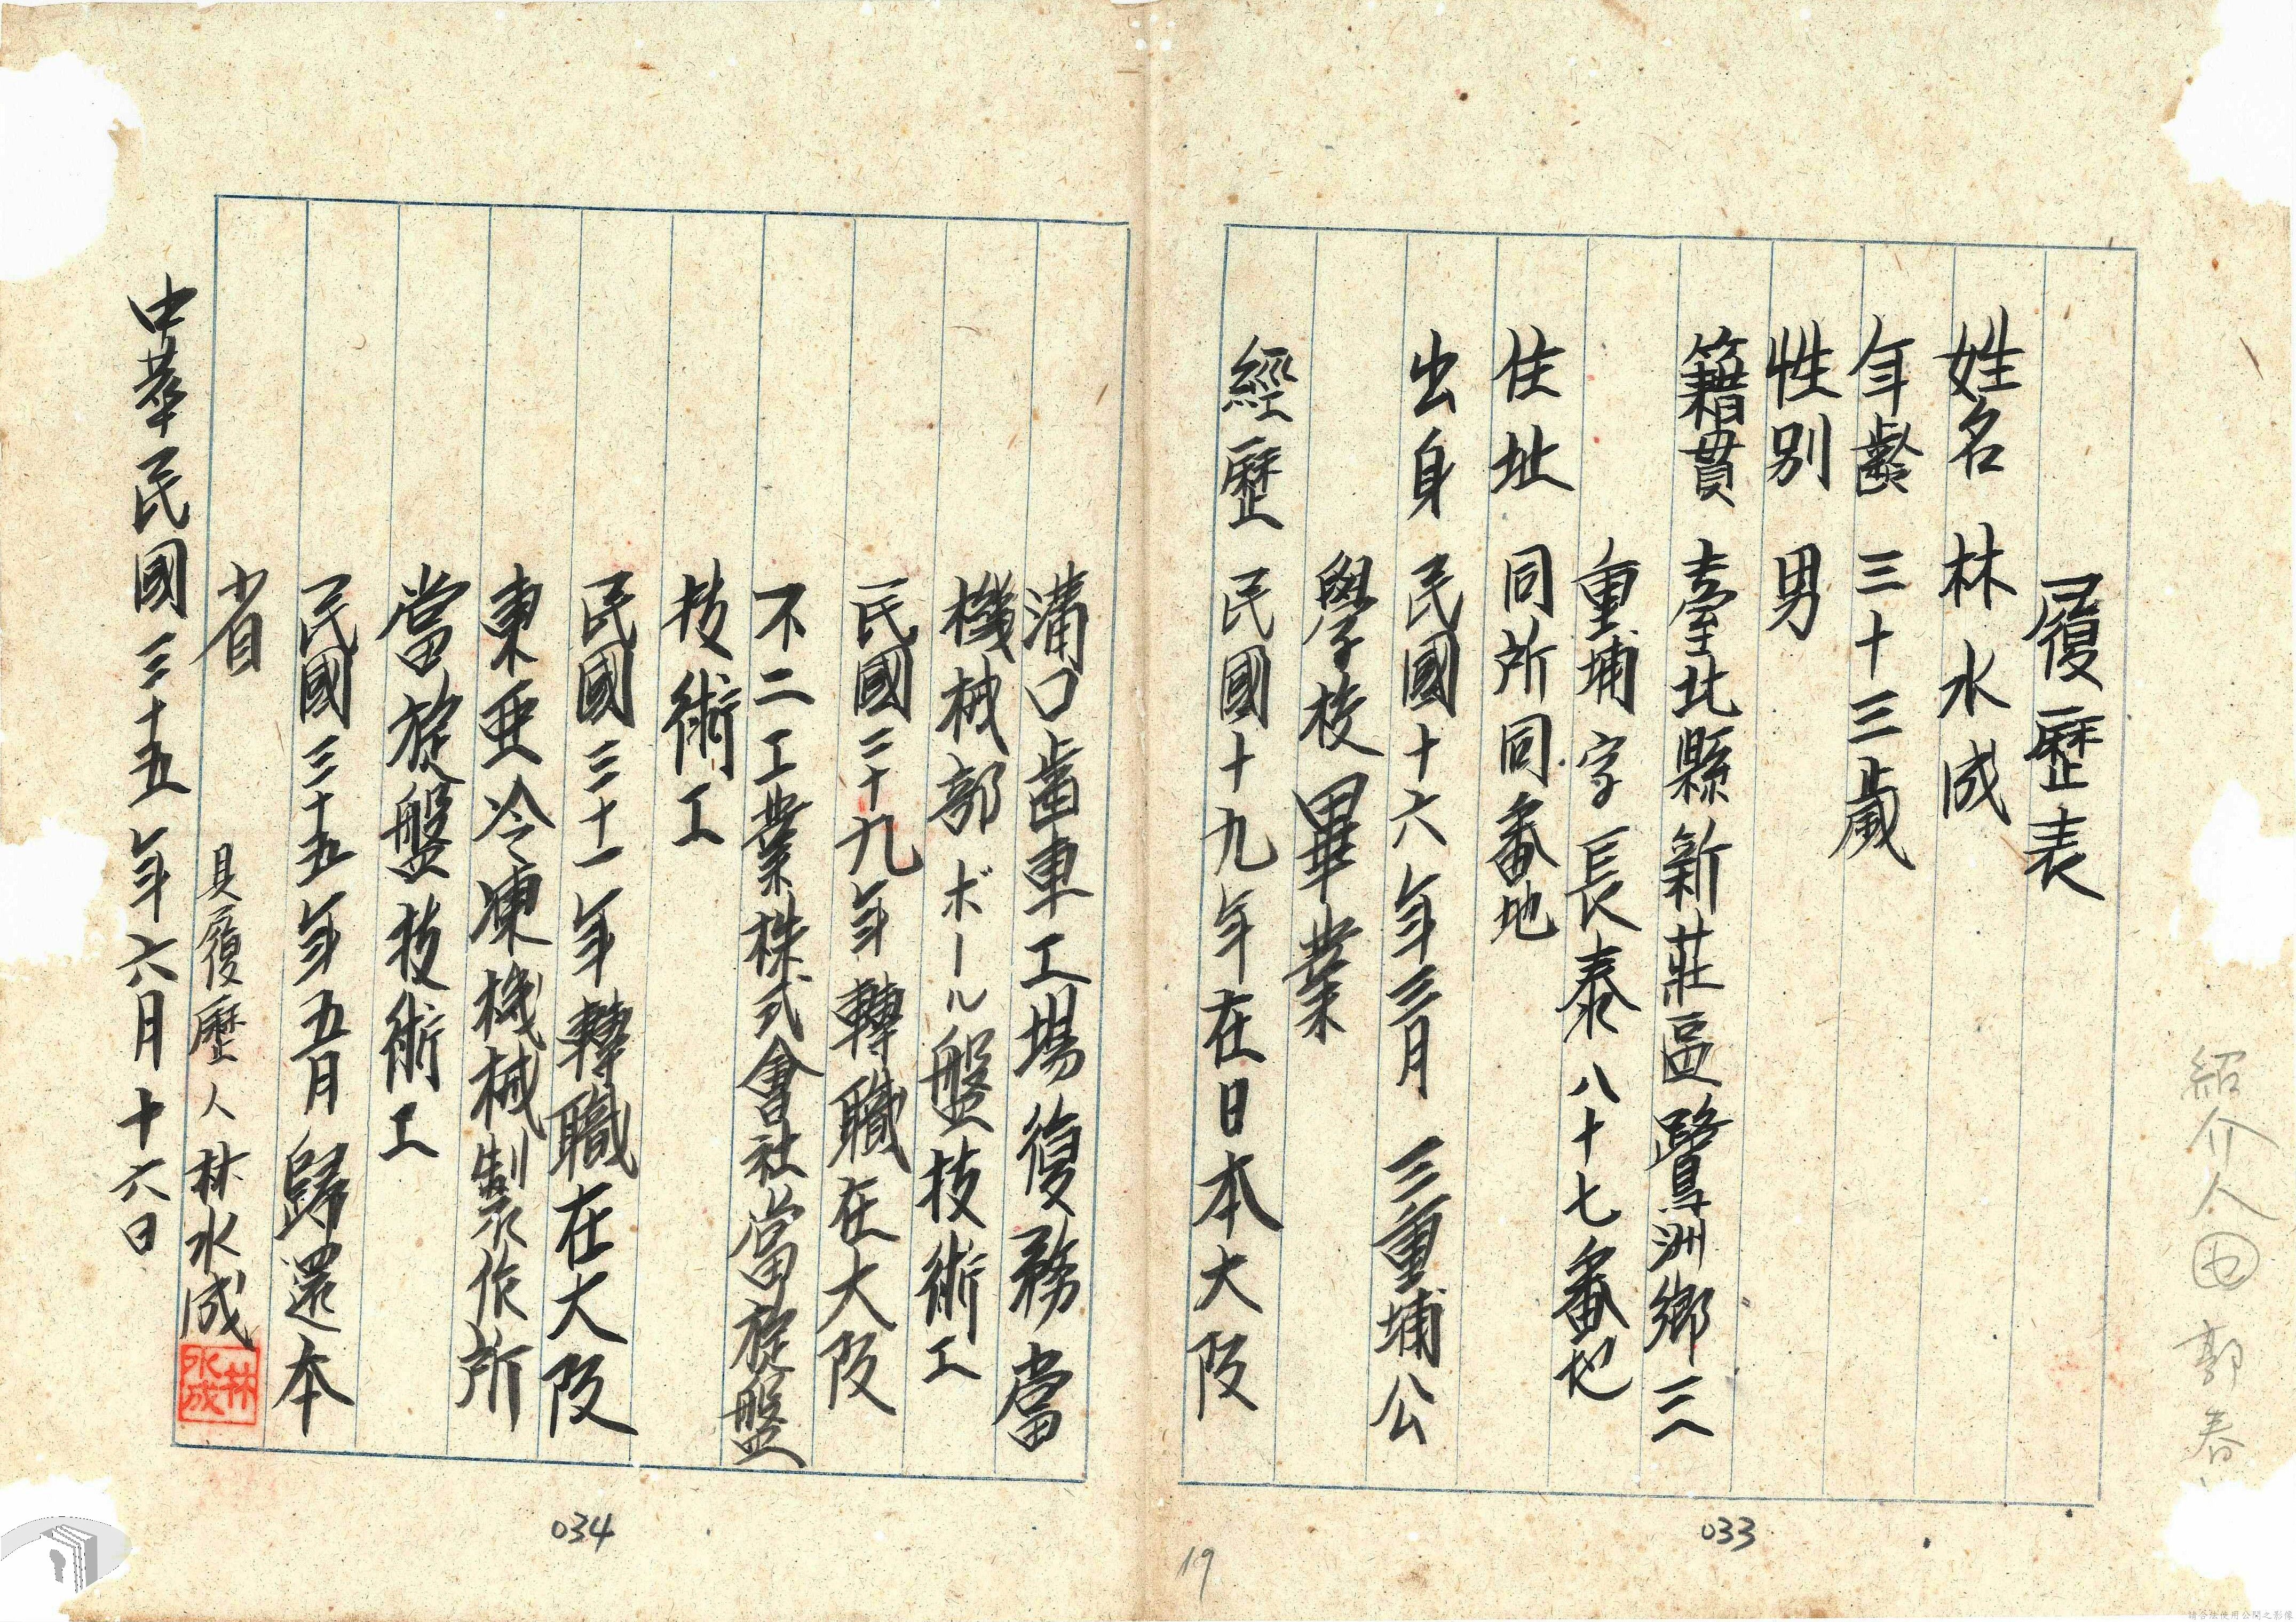 履歷表
姓名 林水成
年齡 三十三歲
性別 男
籍貫 臺北縣新莊區鷺洲鄉三
重埔字長泰八十七番地
住址 同所同番地
出身 民國十六年三月 三重埔公
學校畢業
經歷 民國十九年在日本大阪
溝口齒車工場復務當
機械部ボール盤技術工
民國二十九年轉職在大阪
不二工業株式會社當旋盤
技術工
民國三十一年轉職在大阪
東亜冷凍機械製作所
當旋盤技術工
民國三十五年五月歸還本
省
具履歷人 林水成
林水成
中華民國三十五年六月十六日
紹介人 由 郭春
033
034
19